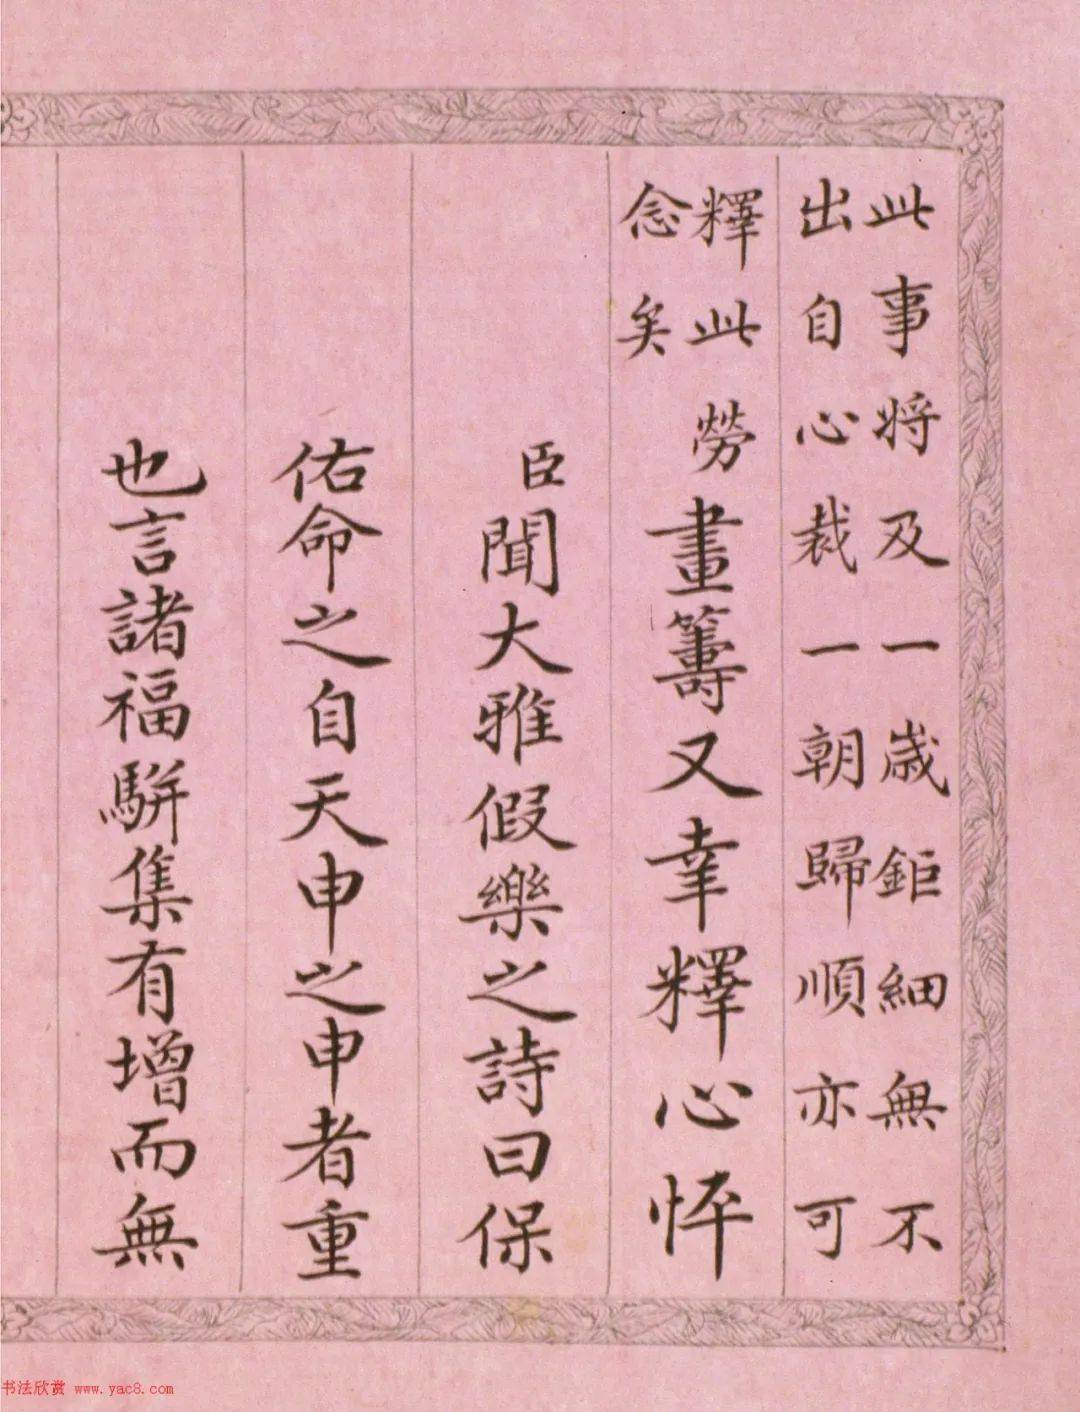 此事将及一歲鉅細無不
出自心裁一朝歸順亦可
釋此勞
念矣
畫籌又幸釋心怦
臣聞大雅假樂之詩曰保
佑命之自天申之申者重
也言諸福駢集有增而無
书法欣赏 www.yac8.com